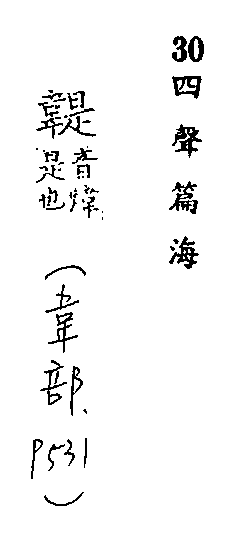 30四聲篇海
⿰韋是音煒是也（韋部、P531）